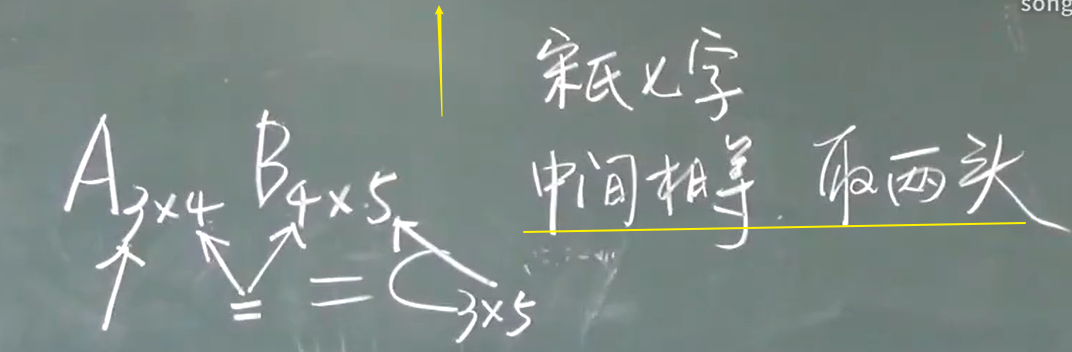 song
宋氏七字
中间相等.取两头
A₃ₓ₄ B₄ₓ₅
= = C₃ₓ₅